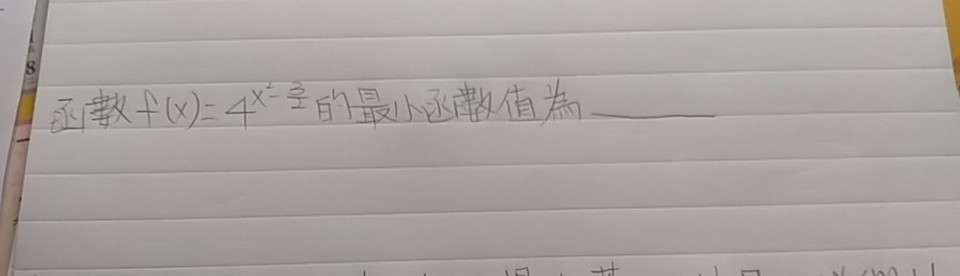 函數f(x)=4^{x²-3/2}的最小函數值為______
8